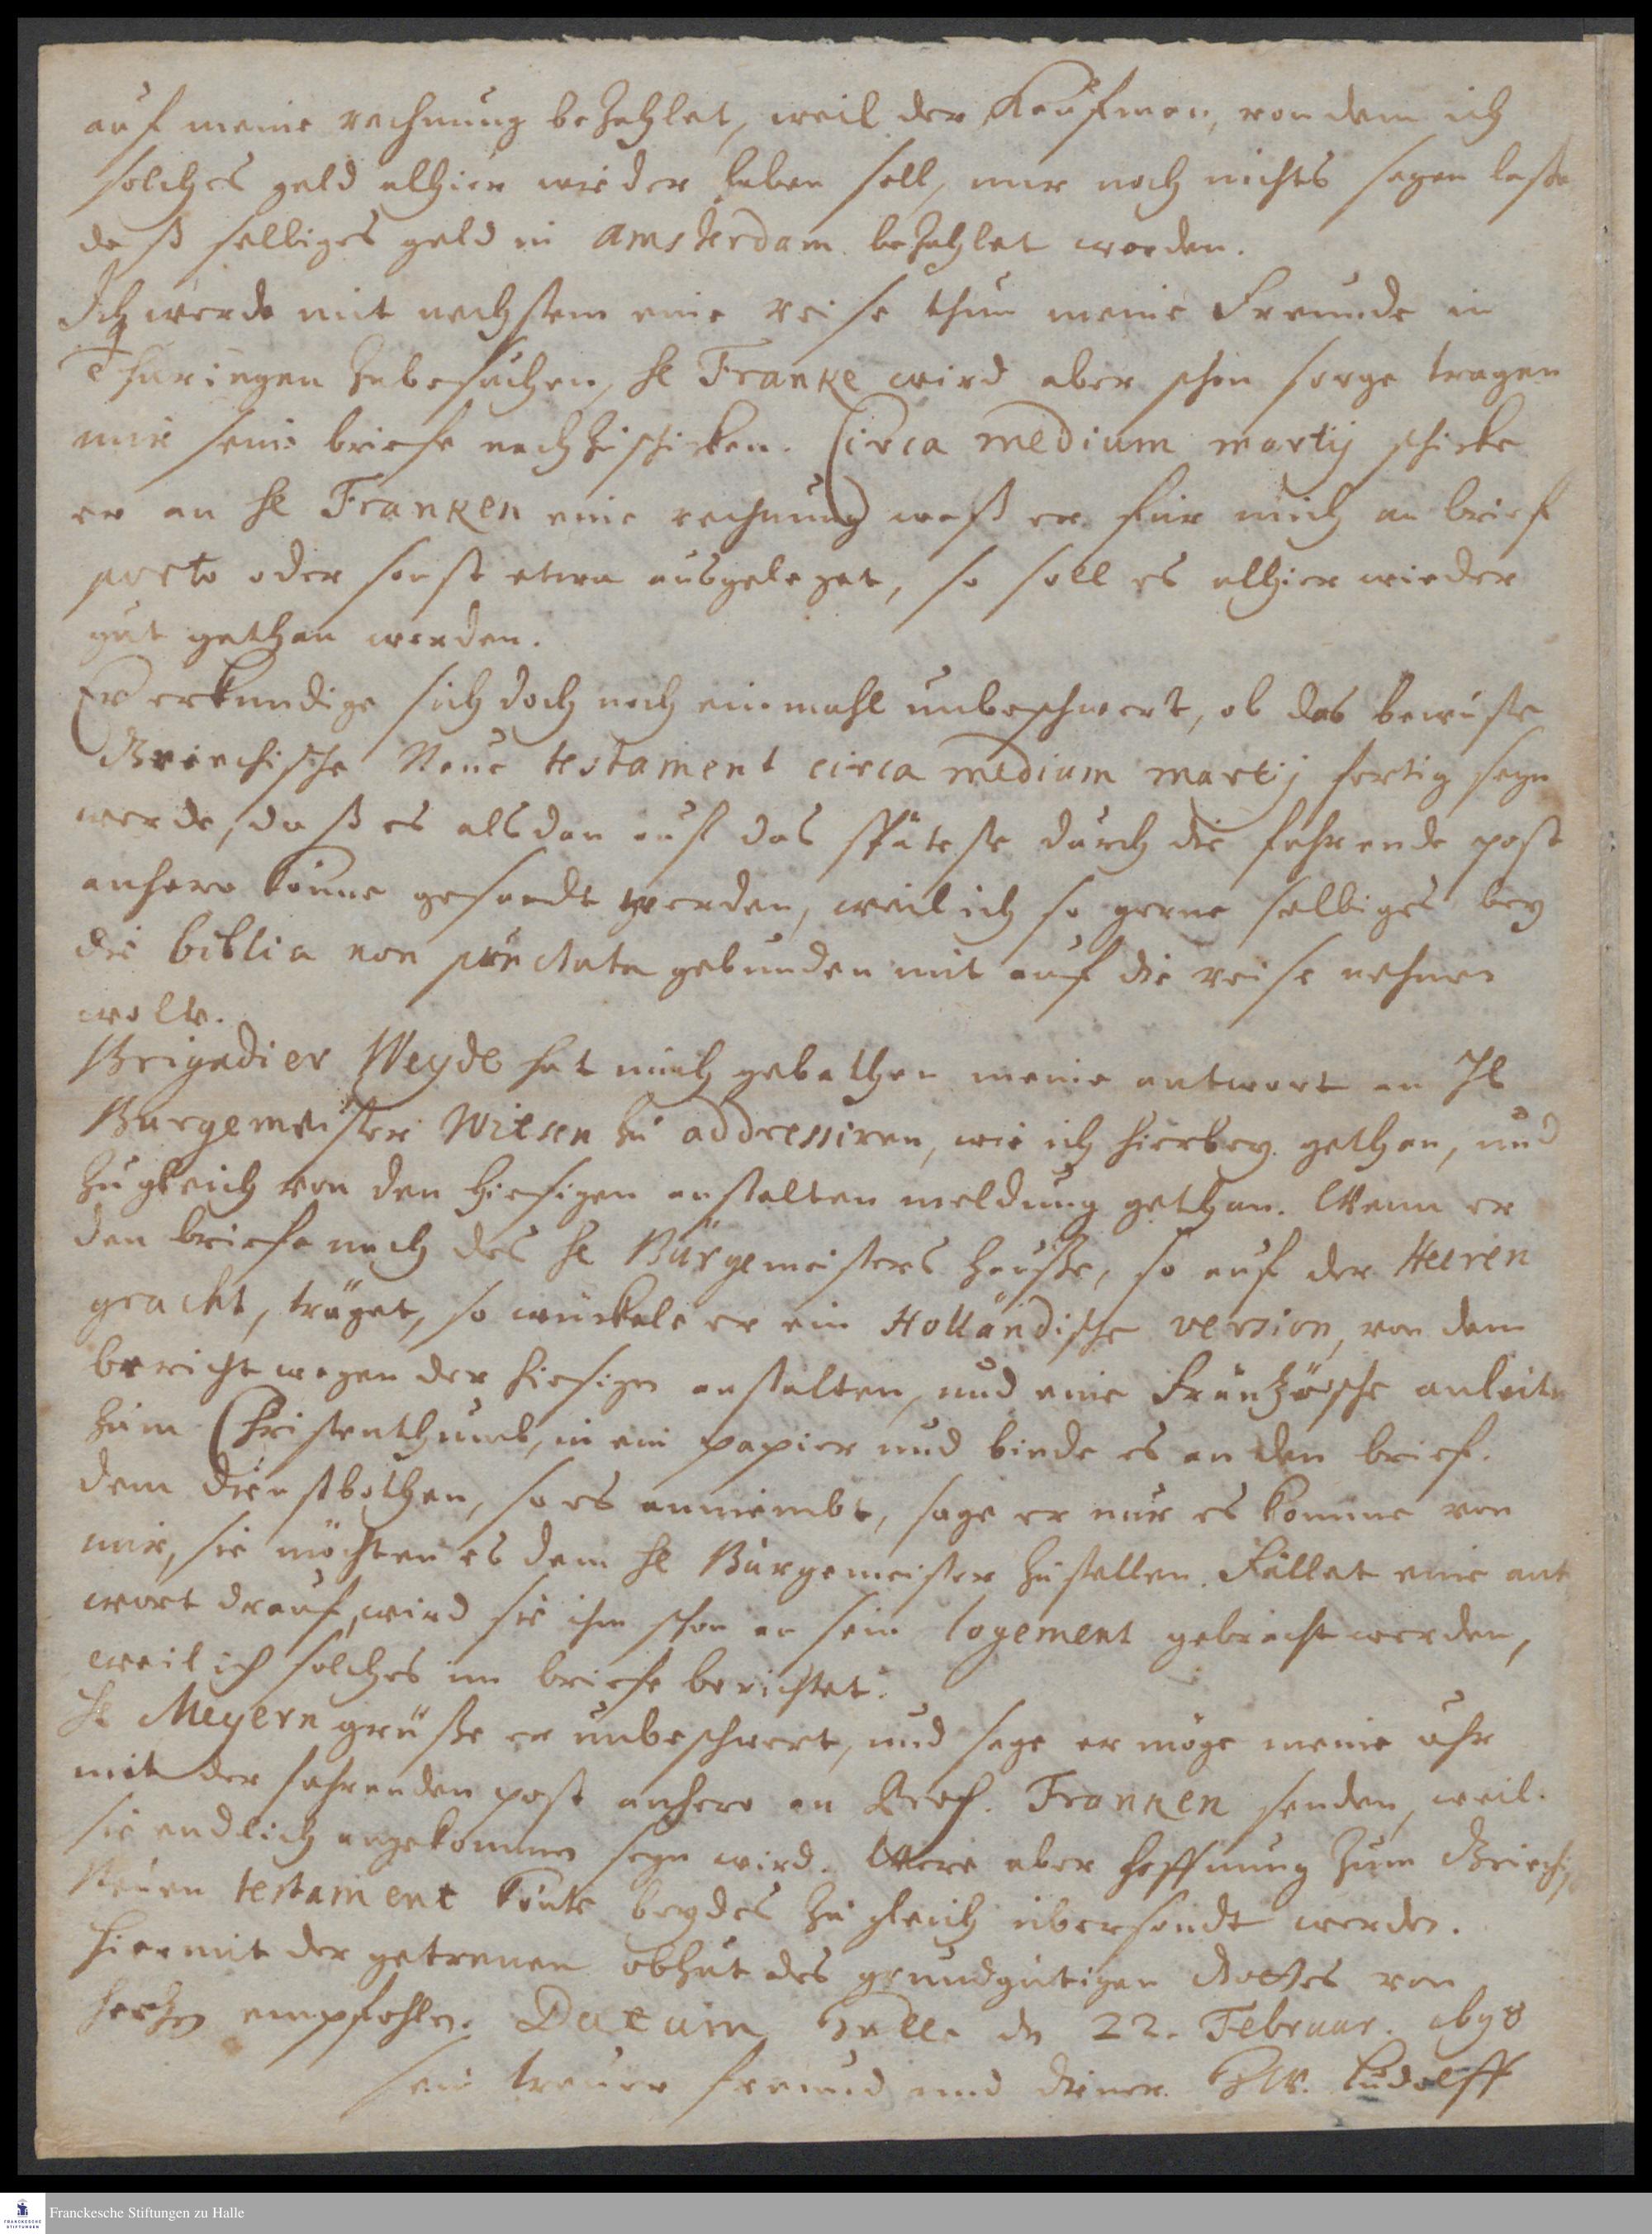 auf meine rechnung bezahlet, weil der Kaufman, von dem ich
solches geld alhier wieder heben soll, mir noch nichts sagen laßen
daß selbiges geld in Amsterdam bezahlet worden.
Ich werde mit nechstem eine reise thun meine Freunde in
Thuringen zubesuchen, H Franke wird aber schon sorge tragen
mir seine briefe nachzuschicken. Circa medium martij schicke
er an H Franken eine rechnung waß er für mich an brief
porto oder sonst etwa ausgeleget, so soll es alhier wieder
gut gethan werden.
Er erkundige sich doch noch einmahl unbeschwert, ob das bewuste
Griechische Neue testament circa medium martij fertig seyn
werde, daß es alsdan auf das späteste durch die fahrende post
anhero könne gesandt werden, weil ich so gerne selbiges bey
die biblia non punctata gebunden mit auf die reise nehmen
wolte.
Brigadier Weyde hat mich gebethen meine antwort an H
Burgemeister Witsen zu addressiren, wie ich hierbey gethan, und
zugleich von den hiesigen anstalten meldung gethan. Wenn er
den briefe nach des H Bürgemeisters hauße, so auf der Heeren
gracht, träget, so wückele er ein Holländische version, von dem
bericht wegen der hiesigen anstalten, und eine Frantzösche anleit
zum Christenthumb, in ein papier und binde es an den brief.
dem dienstbothen, so es annimbt, sage er nur es komme von
mir, sie möchten es dem H Bürgemeister zustellen. Fället eine ant
wort drauf, wird sie ihm schon an sein logement gebracht werden,
weil ich solches im briefe berichtet.
H Meyern grüße er unbeschwert, und sage er möge meine uhr
mit der fahrenden post anhero an Prof. Franken senden, weil
sie endlich angekommen seyn wird. Were aber hoffnung zum Griechis
Neuen testament könte beydes zugleich übersandt werden.
Hiermit der getreuen obhut des grundgütigen Gottes von
hertzen empfohlen. Datum Halle den 22. Februar. 1698
sein treuer freund und diener. HW. Ludolff
Franckesche Stiftungen zu Halle